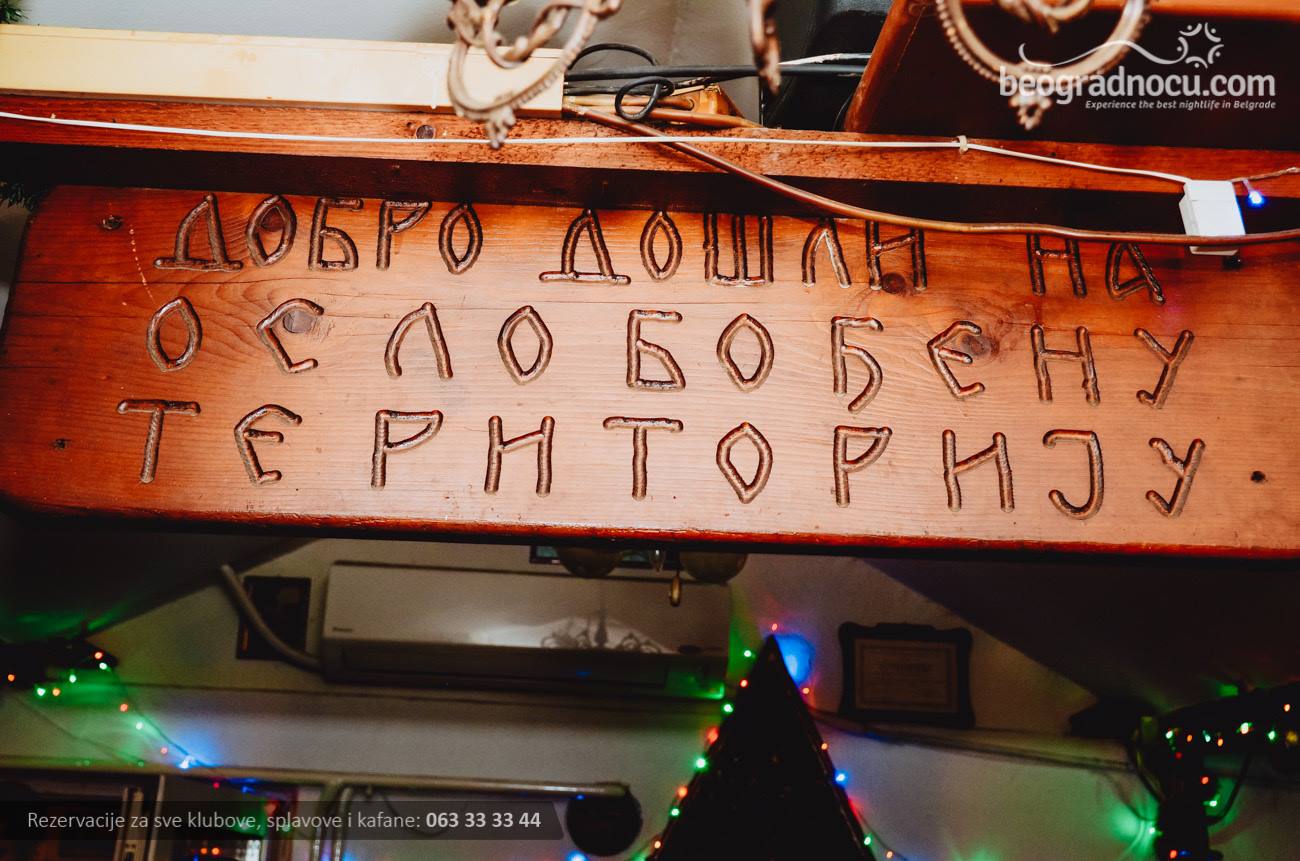 beogradnocu.com
Experience the best nightlife in Belgrade
ДОБРО ДОШЛИ НА
ОСЛОБОЂЕНУ
ТЕРИТОРИЈУ
Rezervacije za sve klubove, splavove i kafane: 063 33 33 44